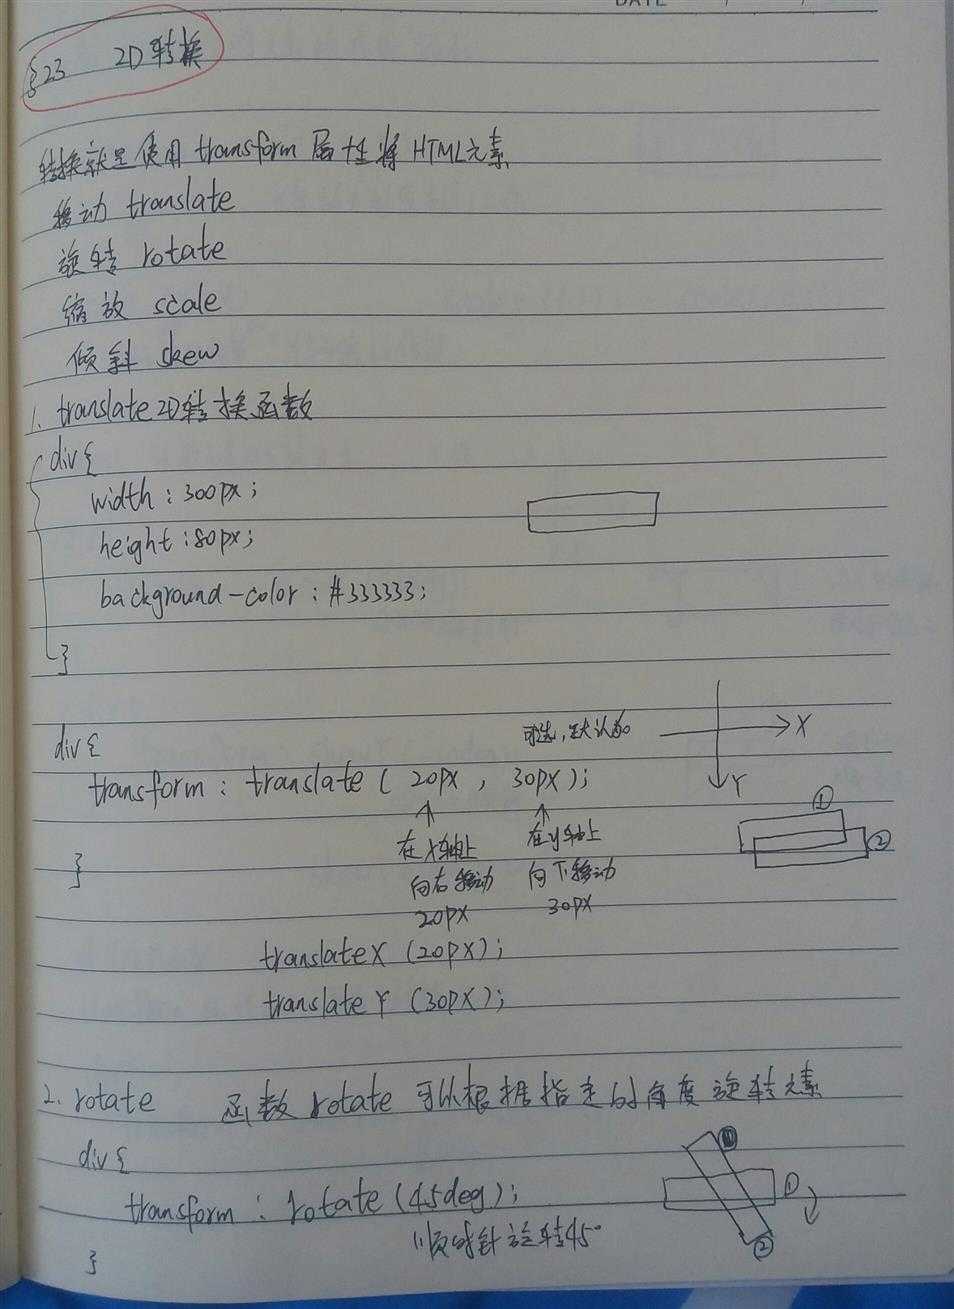 DATE
§23 2D转换
转换就是使用 transform 属性将 HTML元素
移动 translate
旋转 rotate
缩放 scale
倾斜 skew
1. translate 2D转换函数
div {
width : 300px ;
height : 80px;
background-color : #333333;
}
div {
可选，默认为0
X
transform : translate ( 20px , 30px );
Y
①
②
在X轴上
向右移动
20px
在y轴上
向下移动
30px
}
translateX (20px);
translateY (30px);
2. rotate 函数 rotate 可以根据指定的角度旋转元素
div {
①
transform : rotate (45deg);
顺时针旋转45°
②
}